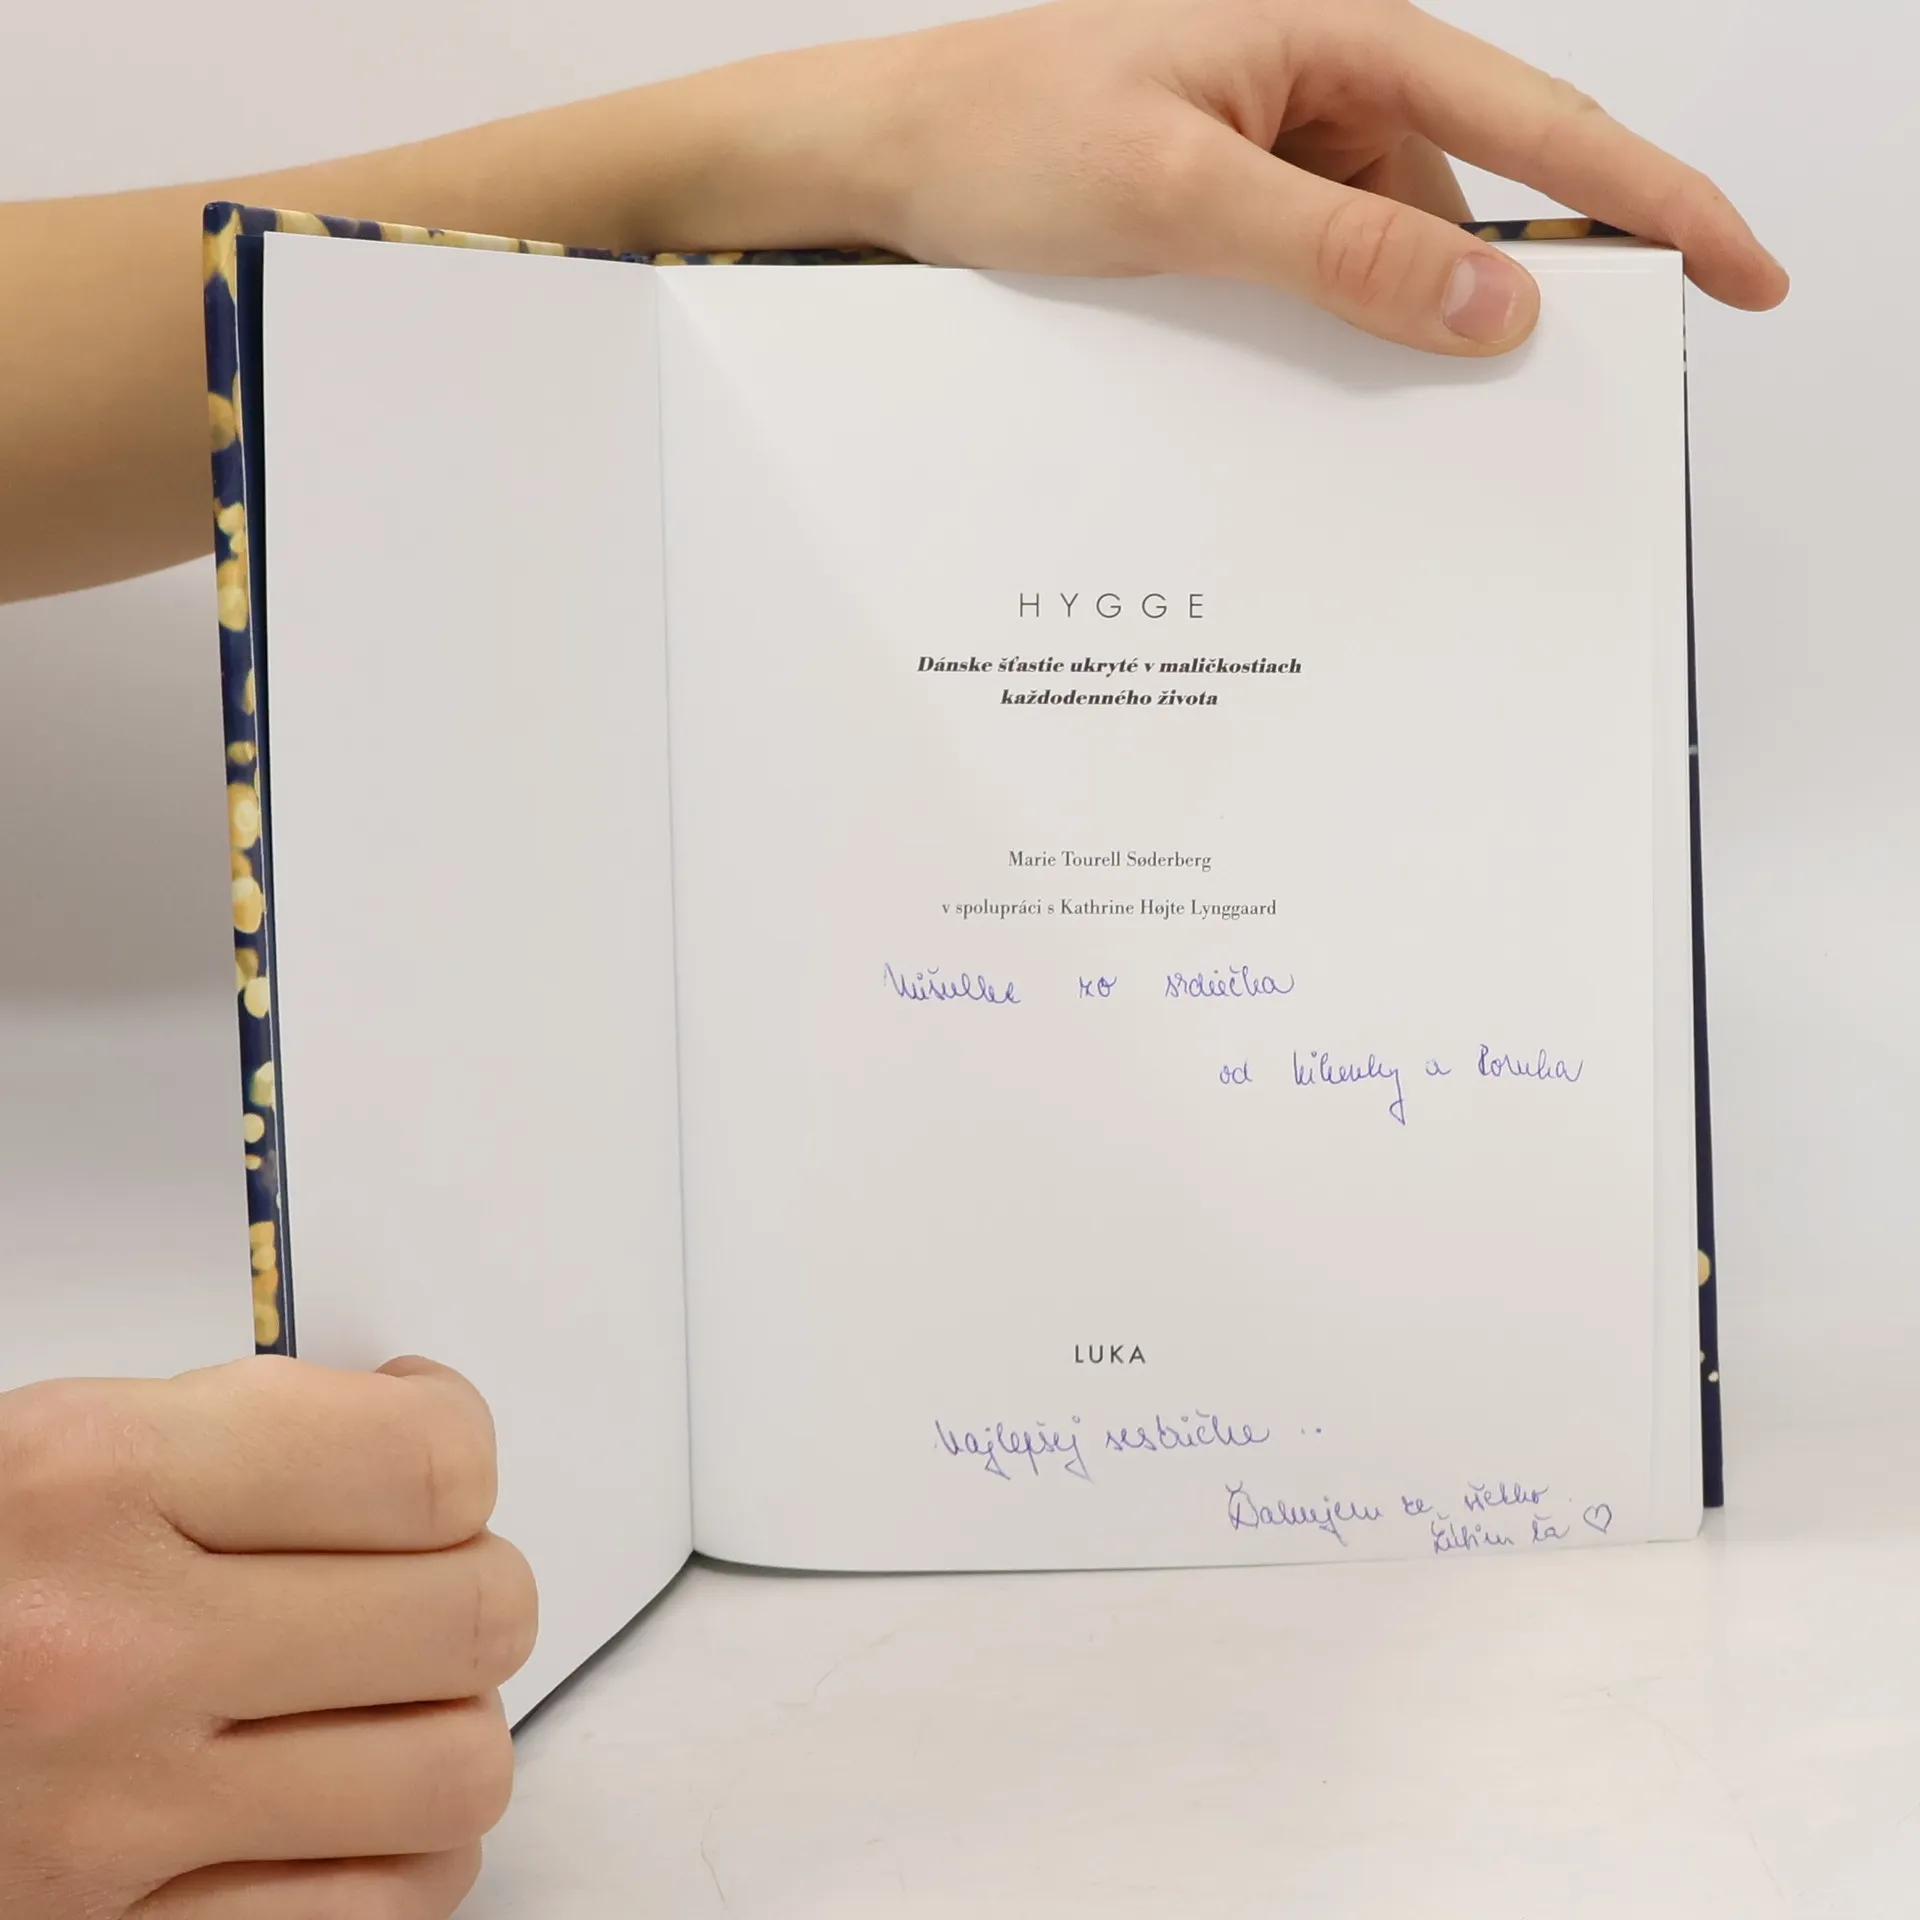 HYGGE
Dánske šťastie ukryté v maličkostiach
každodenného života
Marie Tourell Søderberg
v spolupráci s Kathrine Højte Lynggaard
Mišulke zo srdiečka
od Kikenky a
LUKA
Najlepšej sestričke ..
Ďakujem za všetko
Ľúbim ťa ♡